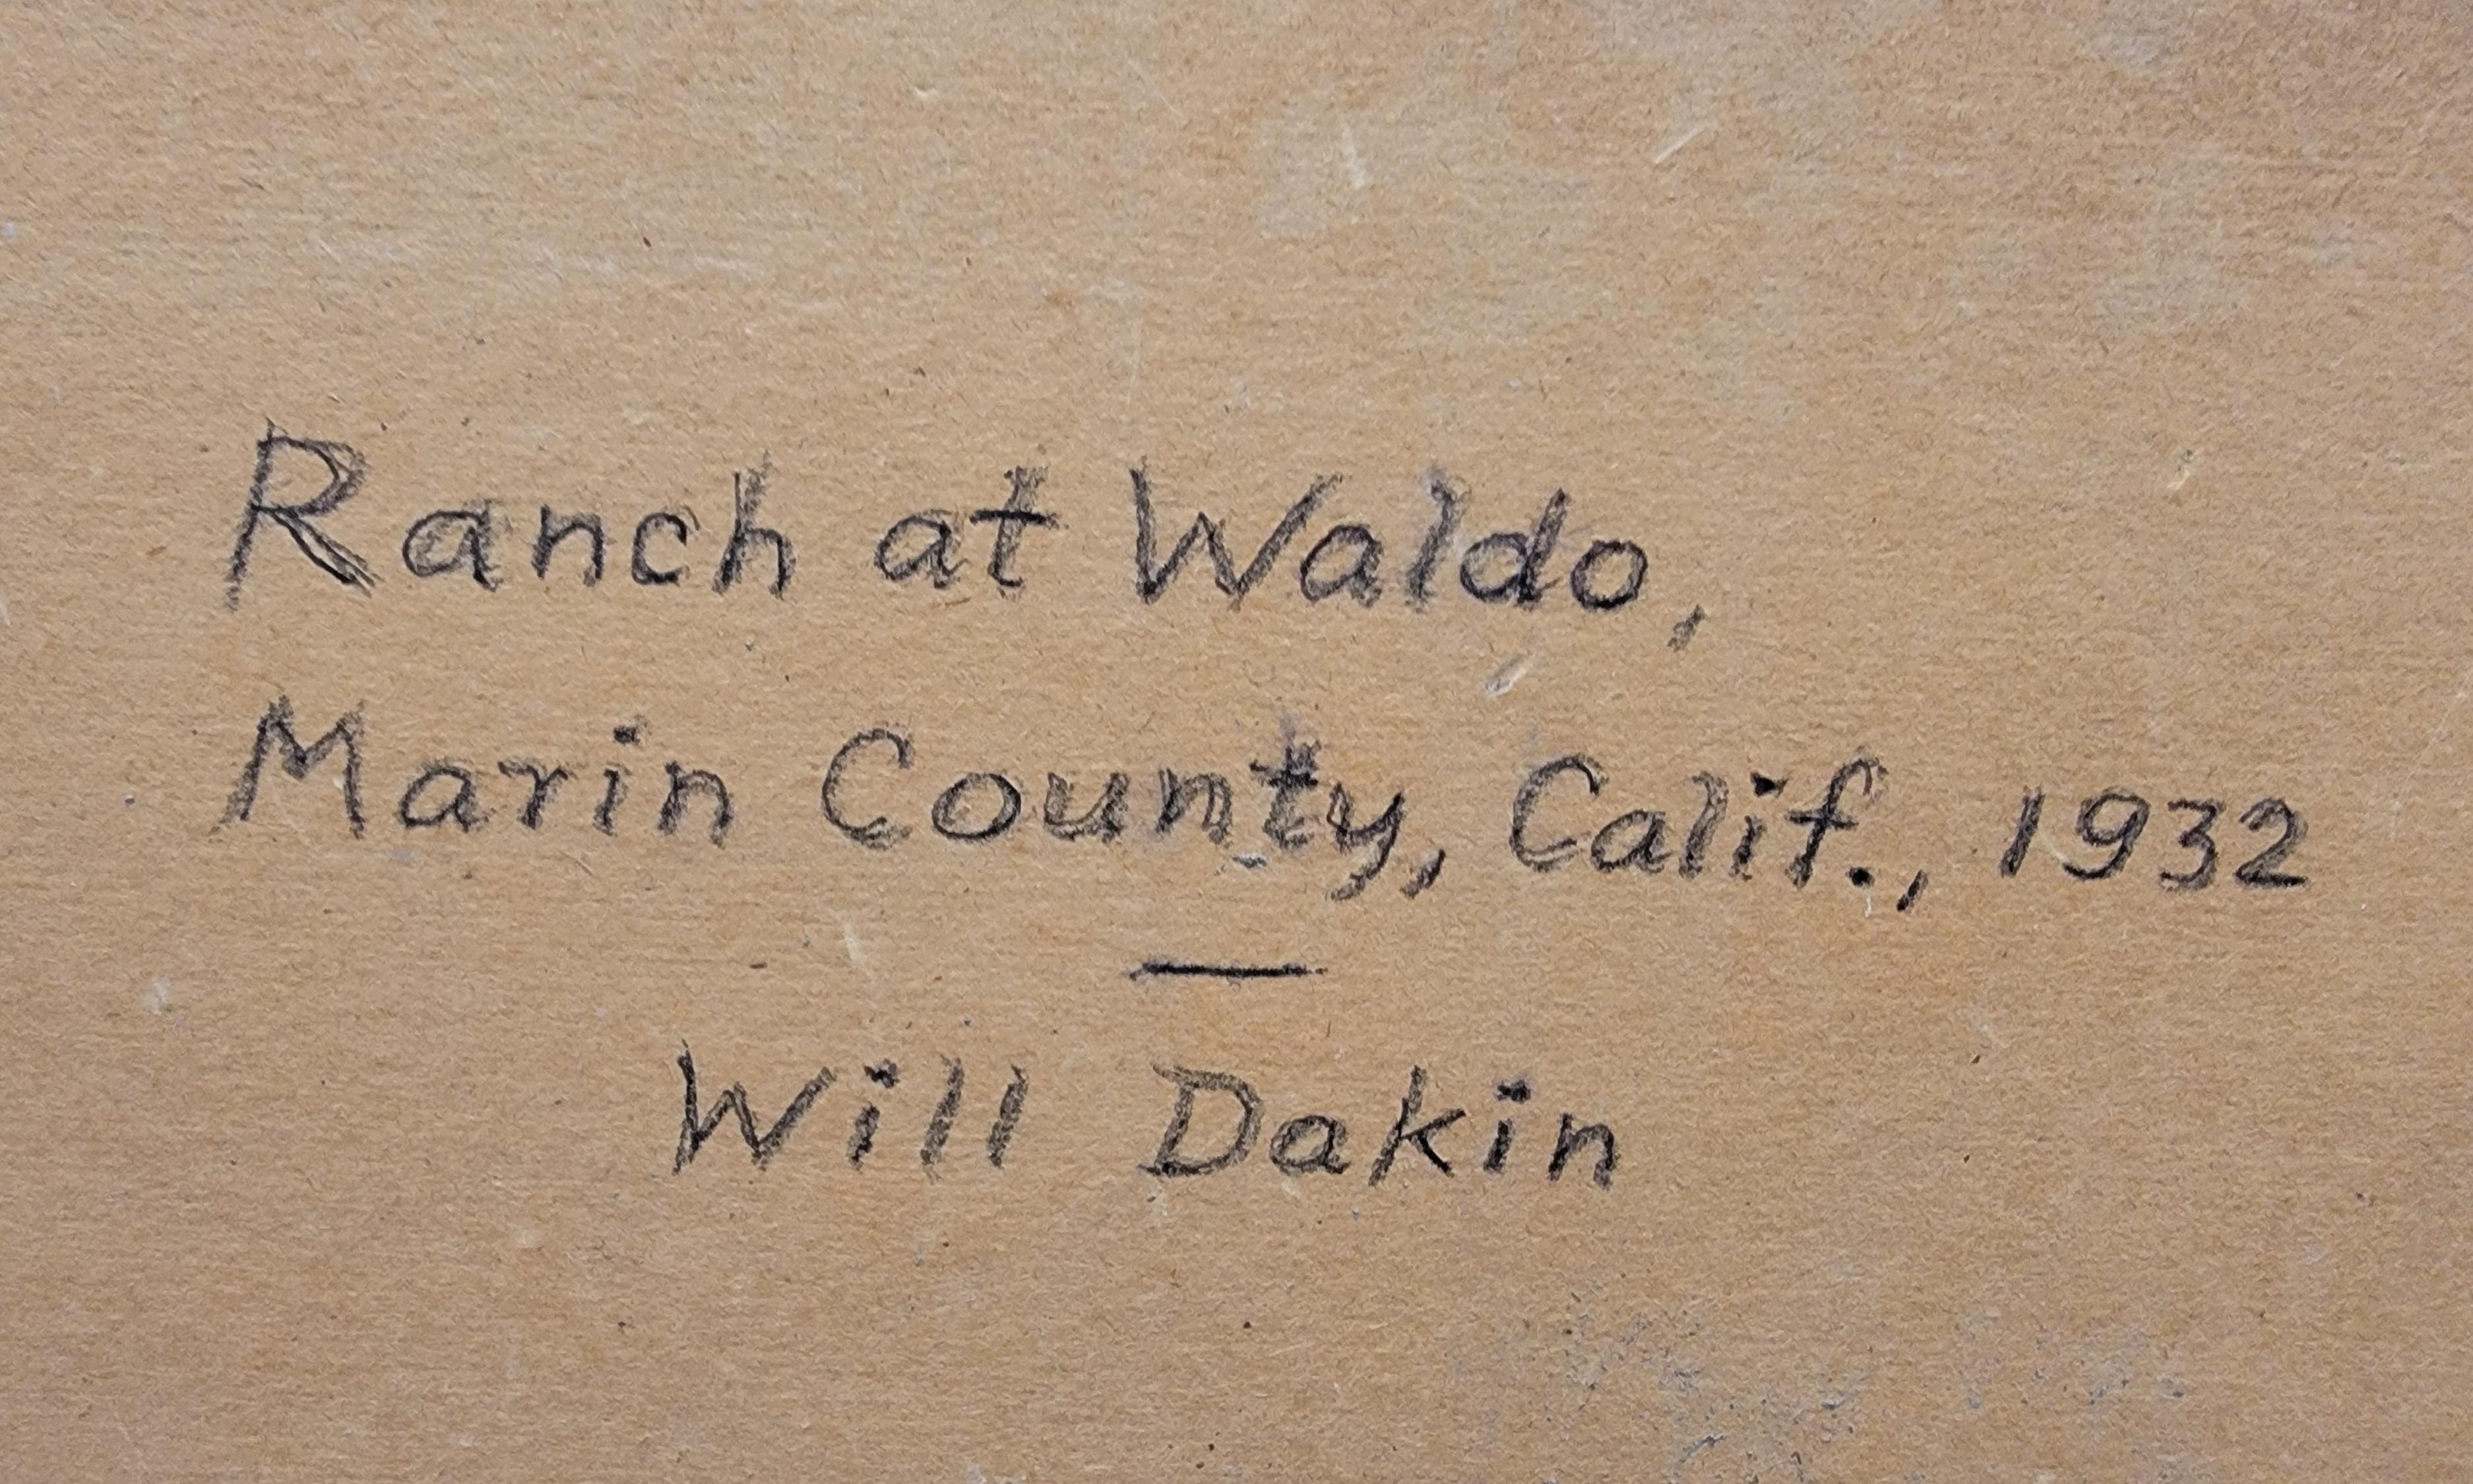 Ranch at Waldo,
Marin County, Calif., 1932
—
Will Dakin